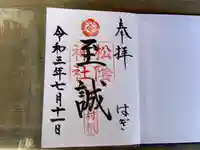 奉拝
はぎ
至誠
松陰
神社
令和三年七月十一日